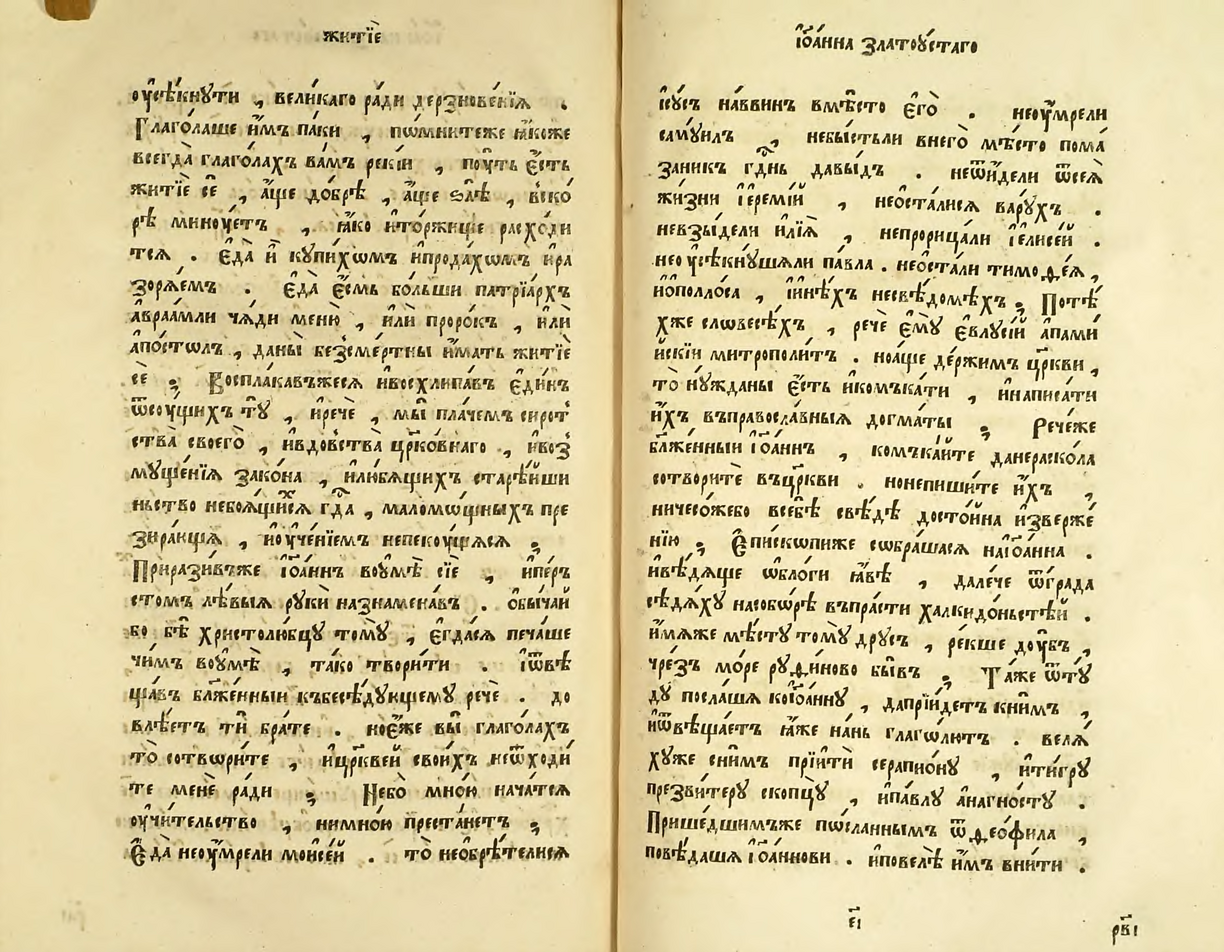 житїе
оу҆сѣ́кнути , вели́каго ра́ди дерзнове́нїѧ .
Глаго́лаше и҆́мъ па́ки , пѡ́мнитеже ꙗ҆́коже
всегда̀ глаго́лахъ ва́мъ реки́и , пꙋ́ть є҆́сть
житїе сѐ , а҆́ще до́брѣ , а҆́ще ѕлѣ̀ , вско́
рѣ мине́тъ , ꙗ҆́ко и҆то́ржище расхо́ди
тсѧ . є҆да̀ и҆ кꙋпи́хѡмъ и҆прода́хѡмъ и҆ра
зорѧ́емъ . є҆да̀ є҆́смь бо́льши патрїа́рхъ
а҆враа́мли ча́ди меню̀ , и҆лѝ проро́къ , и҆лѝ
а҆по́столъ , даны̀ безсме́ртны и҆́мать житїѐ
сѐ ; Восплака́въжесѧ и҆восхли́павъ є҆ди́нъ
ѿсоу́щихъ тꙋ̀ , и҆речѐ , мы̀ пла́чемъ сирот
ства̀ своего̀ , и҆вдовства̀ цр҃ко́внаго , и҆воз
мꙋще́нїѧ зако́на , и҆лю́бѧщихъ старѣ́йши
ньство небоѧ́щисѧ гд҃а , маломѡ́щныхъ пре
зира́ющѧ , и҆оу҆че́нїемъ непеку́щѧсѧ ;
Приразивъже і҆ѡа́ннъ воумѣ̀ сїѐ , и҆пе́ръ
стомъ лѣ́выѧ рꙋкѝ назна́менавъ . ѻ҆бы́чай
бо бѣ̀ христолю́бцꙋ томꙋ̀ , є҆гда́сѧ печа́ше
чи́мъ воумѣ̀ , та́ко твори́ти . і҆ѿвѣ
ща́въ бл҃же́нныи къбесѣ́дꙋющемꙋ речѐ . до
влѣ́етъ тѝ бра́те . ноє҆́же вы̀ глаго́лахъ
то̀ сотвѡри́те , и҆цр҃кве́й свои́хъ неѿходи́
те менѐ ра́ди ; Небо̀ мно́ю нача́тсѧ
оу҆чи́тельство , нимно́ю преста́нетъ ;
Є҆да̀ неоу҆́мрели моисе́й . то̀ необрѣ́телисѧ
і҆ѡа́нна златоу́стаго
і҆сꙋ́съ на́ввинъ вмѣ́сто є҆го̀ . неоу҆́мрели
самꙋи́лъ , небы́стьли внего̀ мѣ́сто пома́
заникъ гд҃нь давы́дъ . неѿи́дели ѿсеѧ̀
жи́зни і҆еремі́й , неоста́лисѧ вару́хъ .
невзы́дели и҆лїѧ̀ , непрорица́ли і҆елисе́й .
неоу҆сѣ́кнушѧли па́вла . неоста́ли тимоѳе́ѧ ,
и҆опо́ллоса , і҆и҆нѣ́хъ несвѣ́домѣхъ ; Потѣ́
хже словесѣ́хъ , речѐ є҆мꙋ̀ є҆влꙋ́сїй а҆памі
и҆́скїи митрополи́тъ . ноа҆́ще де́ржимъ цр҃кви ,
то̀ нꙋ́жданы є҆́сть и҆комъка́ти , и҆написа́ти
и҆́хъ въправосла́вныѧ догма́ты ; Рече́же
бл҃же́нныи і҆ѡа́ннъ , комъка́йте данераско́ла
сотворитѐ въцр҃кви . нонепиши́те и҆́хъ ,
ничесо́жебо всебѣ̀ свѣ́дѣ досто́йна и҆зверже́
нїю ; Є҆пи́скѡпиже сѡбра́шасѧ наі҆ѡа́нна .
и҆вѣ́дѧще ѡ҆бло́ги ꙗ҆́вѣ , дале́че ѿгра́да
сѣдѧ́хꙋ насобѡ́рѣ въпра́сти халкидо́ньстѣй .
и҆́мѧже мѣ́стꙋ томꙋ̀ дрꙋ́съ , ре́кше доу́бъ ,
чре́зъ мо́ре рꙋѳи́ново бы́въ ; Та́же ѿтꙋ́
дꙋ посла́шѧ коі҆ѡа́ннꙋ , дапрїи́детъ кни́мъ ,
и҆ѿвѣща́етъ ꙗ҆́же на́нь глагѡ́лютъ . велѧ́
хꙋже сни́мъ прїитѝ серапїѡ́нꙋ , и҆ти́грꙋ
презви́терꙋ скопцꙋ̀ , и҆па́влꙋ а҆нагно́стꙋ .
Прише́дшимъже пѡ́сланнымъ ѿѳео́фила ,
повѣ́дашѧ і҆ѡа́ннови . и҆повелѣ̀ и҆́мъ вни́ти .
є҃і
рв҃і